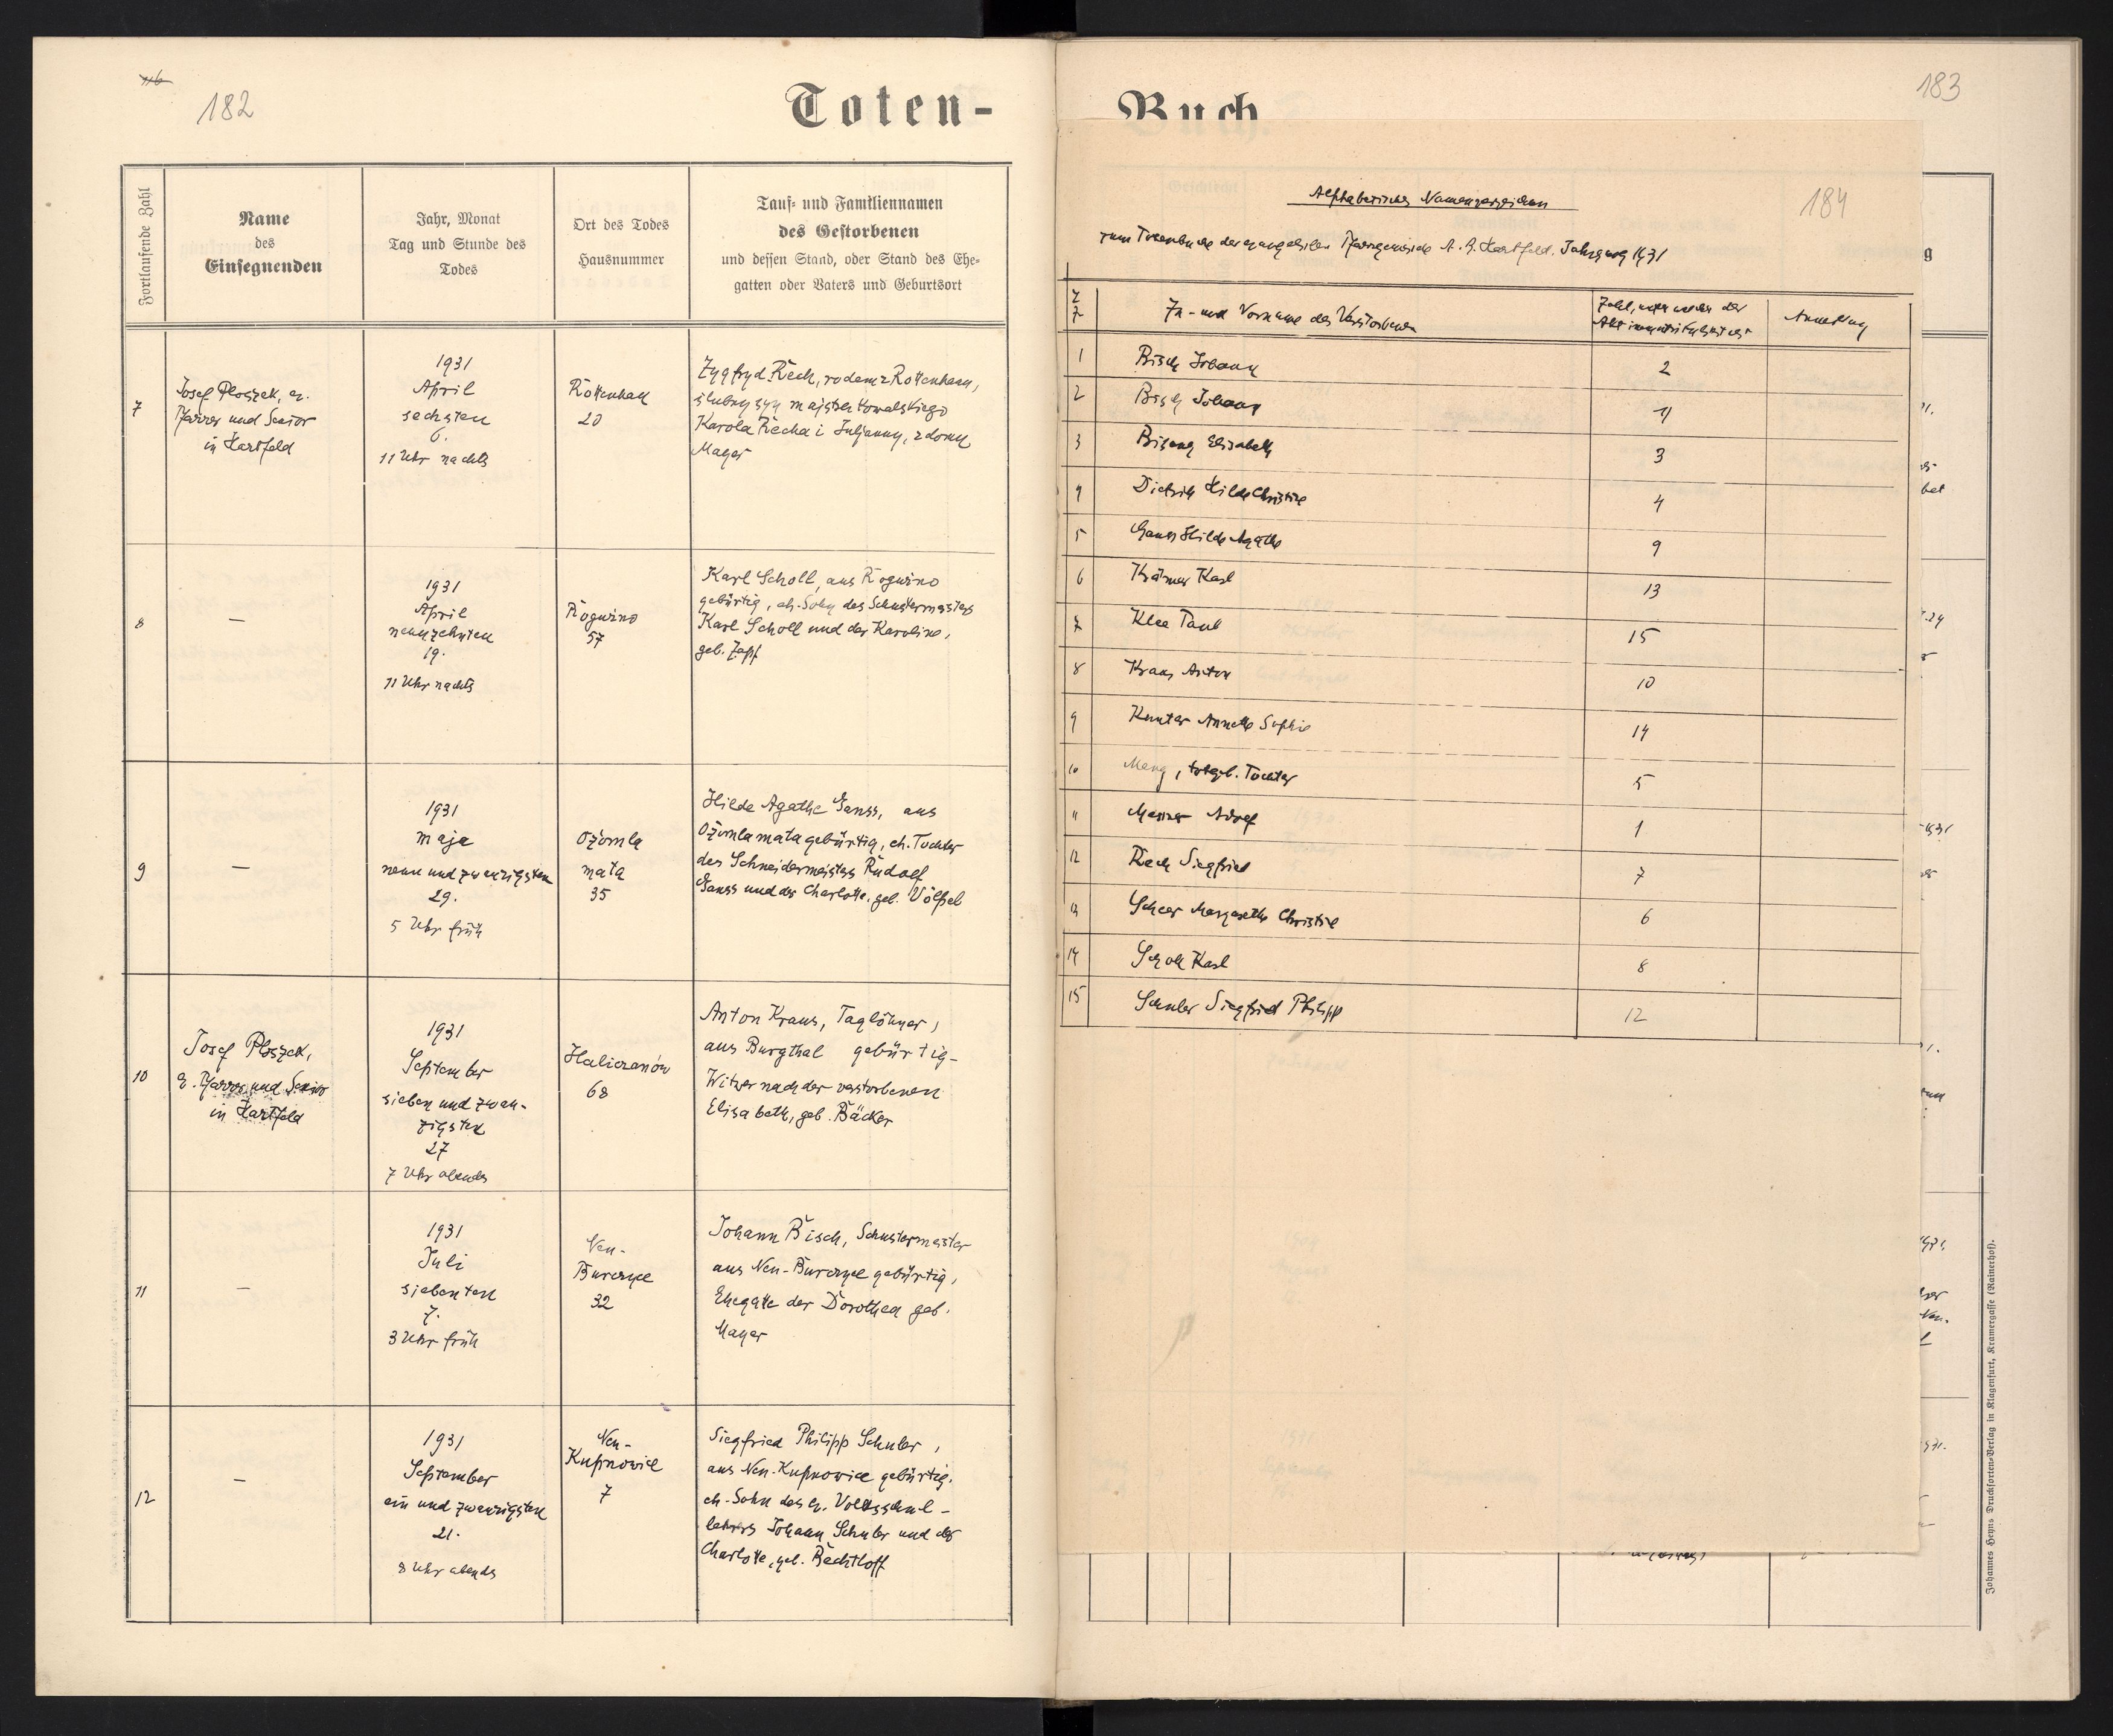 116
182
Toten-
Fortlaufende Zahl
Name
des
Einsegnenden
Jahr, Monat
Tag und Stunde des
Todes
Ort des Todes
Hausnummer
Tauf- und Familiennamen
des Gestorbenen
und dessen Stand, oder Stand des Ehe-
gatten oder Vaters und Geburtsort
7
Josef Ploszek, ev.
Pfarrer und Senior
in Hartfeld
1931
April
sechsten
6.
11 Uhr nachts
Rottenhan
20
Zygfryd Rech, rodem z Rottenhanu,
ślubny syn majstra kowalskiego
Karola Recha i Juljanny, z domu
Mayer
8
—
1931
April
neunzehnten
19.
11 Uhr nachts
Roguźno
57
Karl Scholl, aus Roguźno
gebürtig, eh. Sohn des Schustermeisters
Karl Scholl und der Karoline,
geb. Zapf
9
—
1931
maja
neun und zwanzigsten
29.
5 Uhr früh
Ożomla
mała
35
Hilde Agathe Ganss, aus
Ożomla mała gebürtig, eh. Tochter
des Schneidermeisters Rudolf
Ganss und der Charlotte, geb. Völpel
10
Josef Ploszek,
ev. Pfarrer und Senior
in Hartfeld
1931
September
sieben und zwan-
zigsten
27
7 Uhr abends
Haliczanów
68
Anton Kraus, Taglöhner,
aus Burgthal gebürtig-
Witwer nach der verstorbenen
Elisabeth, geb. Bäcker
11
—
1931
Juli
siebenten
7.
3 Uhr früh
Neu-
Burczyce
32
Johann Bisch, Schustermeister
aus Neu-Burczyce gebürtig,
Ehegatte der Dorothea geb.
Mayer
12
—
1931
September
ein und zwanzigsten
21.
8 Uhr abends
Neu-
Kupnowice
7
Siegfried Philipp Schuler,
aus Neu-Kupnowice gebürtig.
eh. Sohn des ev. Volksschul-
lehrers Johann Schuler und der
Charlotte, geb. Bechtloff
Buch.
183
184
Alphabetisches Namenverzeichnis
zum Totenbuche der evangelischen Pfarrgemeinde A. B. Hartfeld. Jahrgang 1931
Z
Z
Zu- und Vorname des Verstorbenen
Zahl, unter welcher der
Akt immatrikuliert ist
Anmerkung
1 Bisch Johann 2
2 Bisch Johann 11
3 Bisanz Elisabeth 3
4 Dietrich Hilde Christine 4
5 Ganss Hilde Agathe 9
6 Krämer Karl 13
7 Klee Paul 15
8 Kraus Anton 10
9 Kunter Annette Sophie 14
10 Mang, totgeb. Tochter 5
11 Messner Adolf 1
12 Rech Siegfried 7
13 Scheer Margarethe Christine 6
14 Scholl Karl 8
15 Schuler Siegfried Philipp 12
Johannes Heyns Drucksorten-Verlag in Klagenfurt, Kramergasse (Rainerhof).